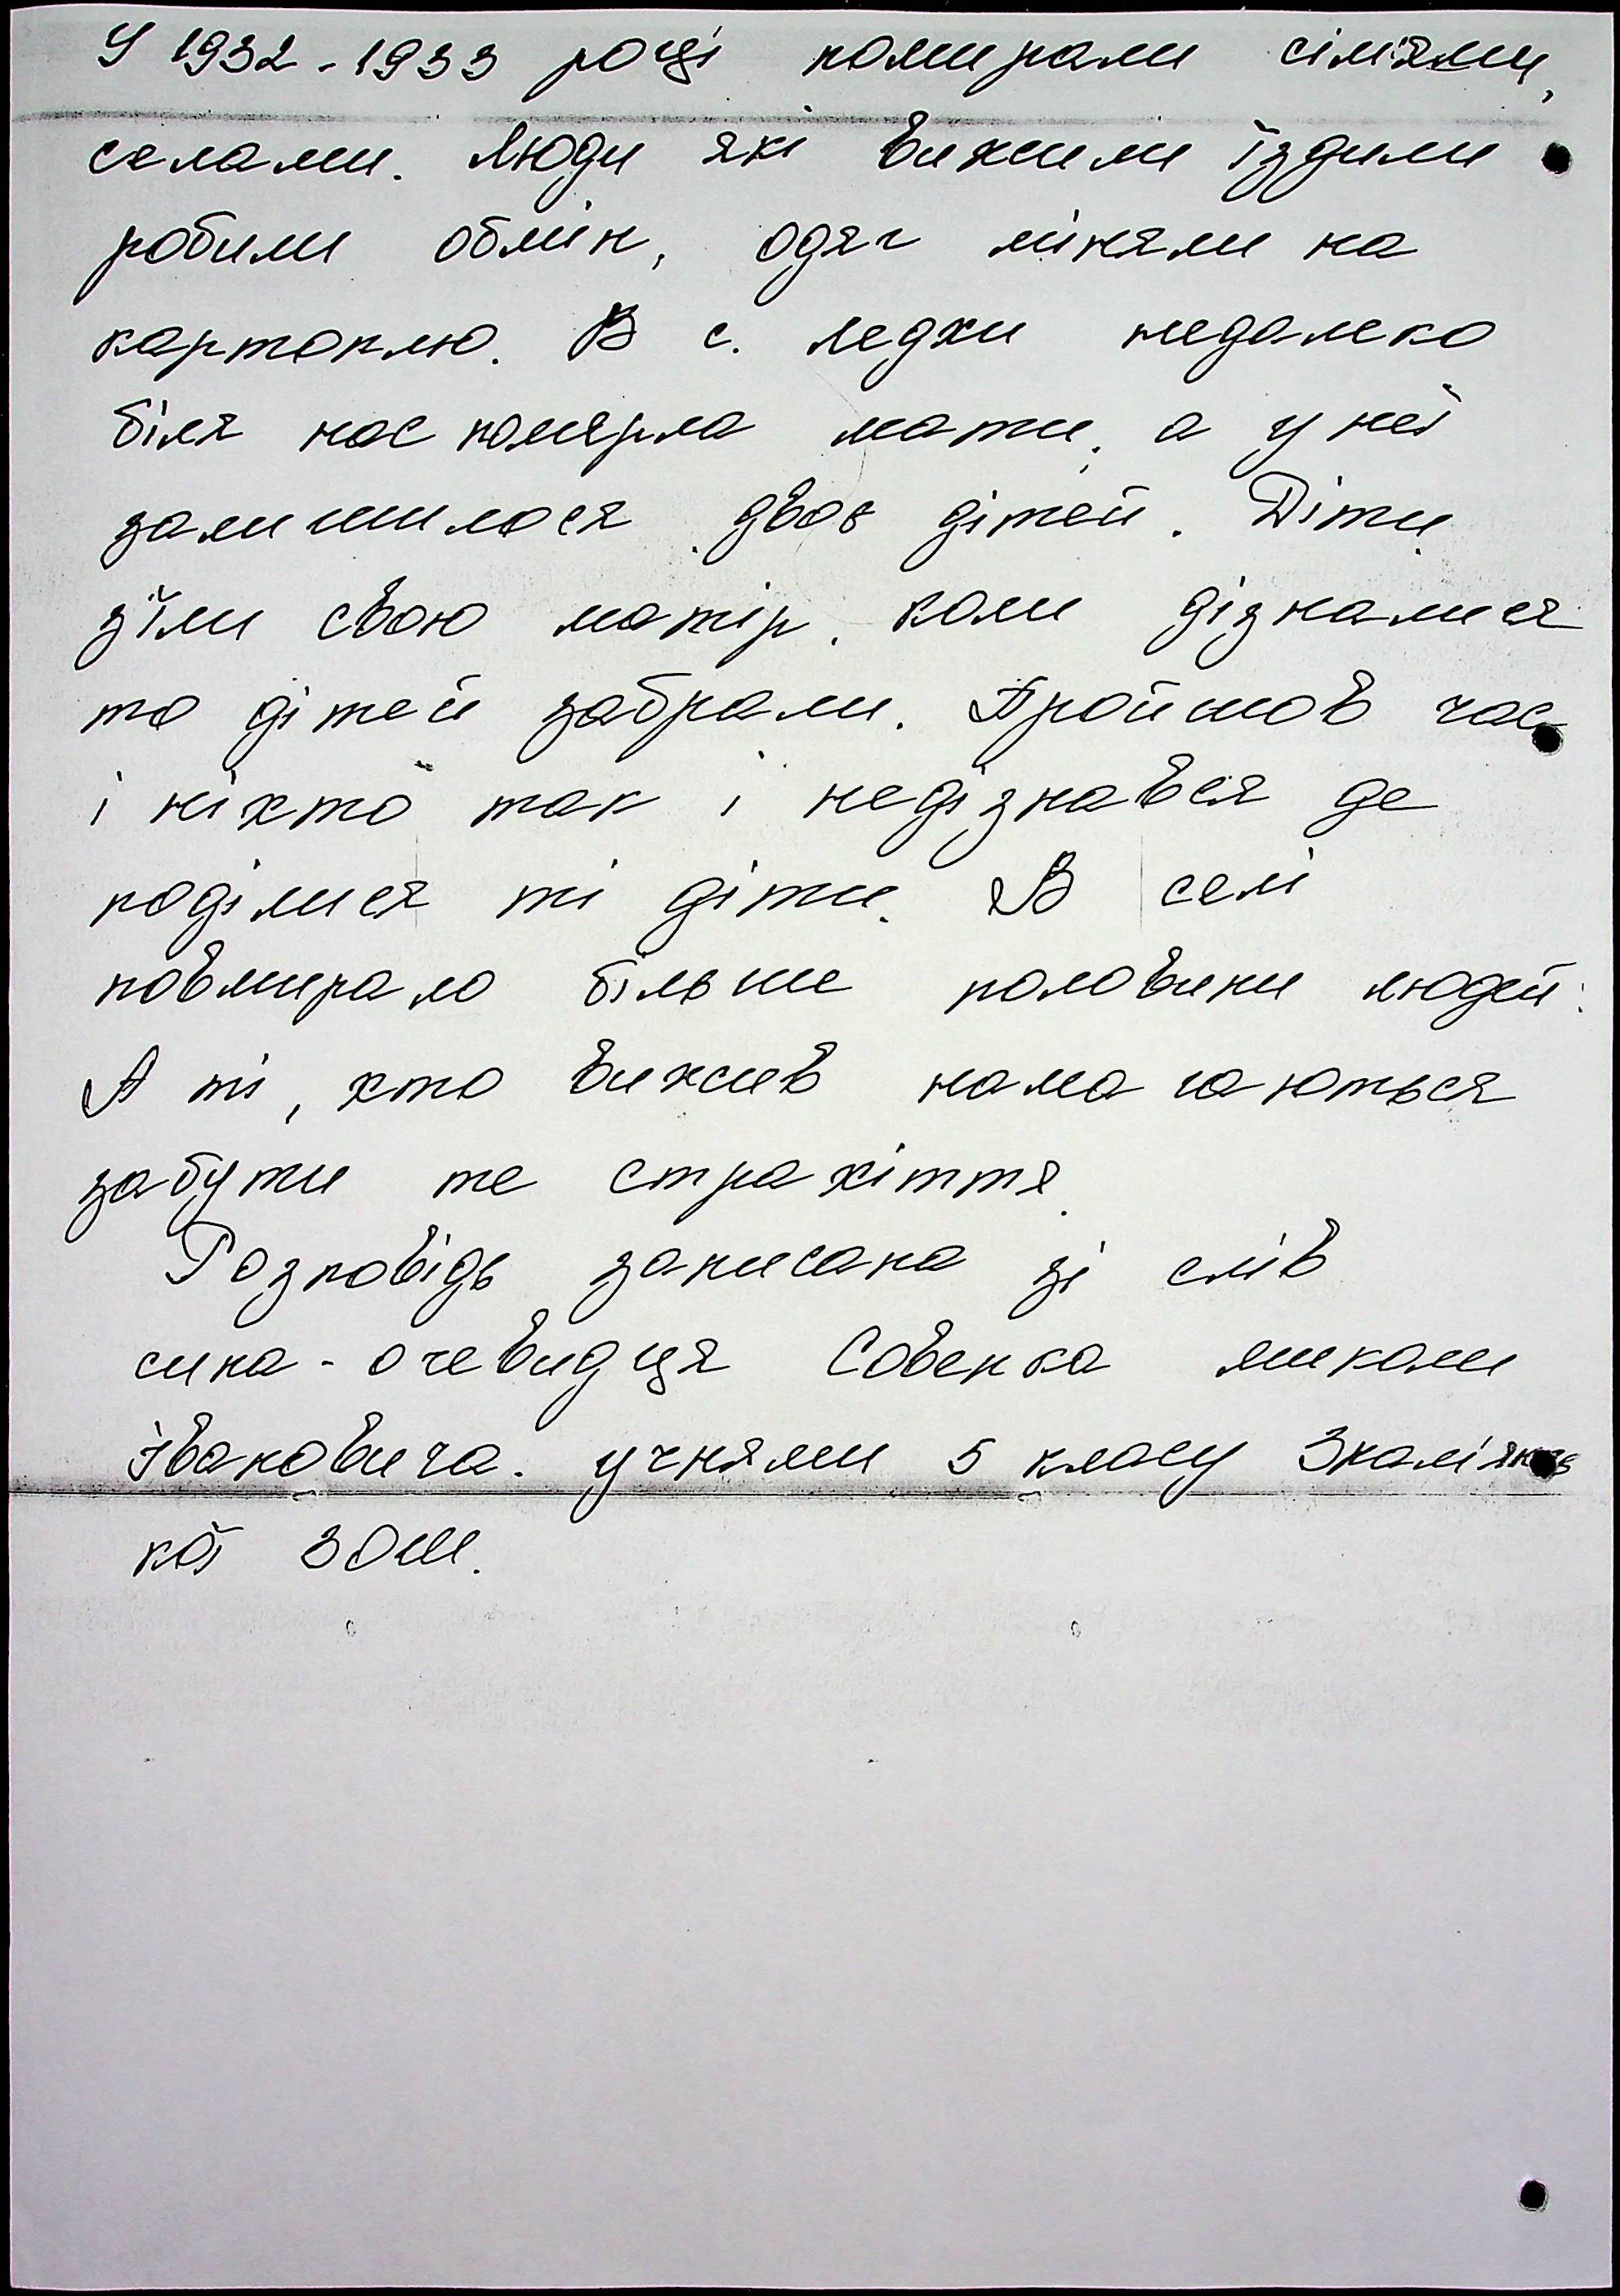 У 1932-1933 році помирали сім'ями,
селами. Люди які вижили їздили
робили обмін, одяг міняли на
картоплю. В с. Ледхи недалеко
біля нас померла мати, а у неї
залишилося двоє дітей. Діти
з'їли свою матір. коли дізналися
то дітей забрали. Пройшов час
і ніхто так і недізнався де
поділися ті діти. В селі
повмирало більше половини людей.
А ті, хто вижив намагаються
забути те страхіття.
Розповідь записана зі слів
сина-очевидця Совенка Миколи
Івановича. учнями 5 класу
кої ЗОШ.